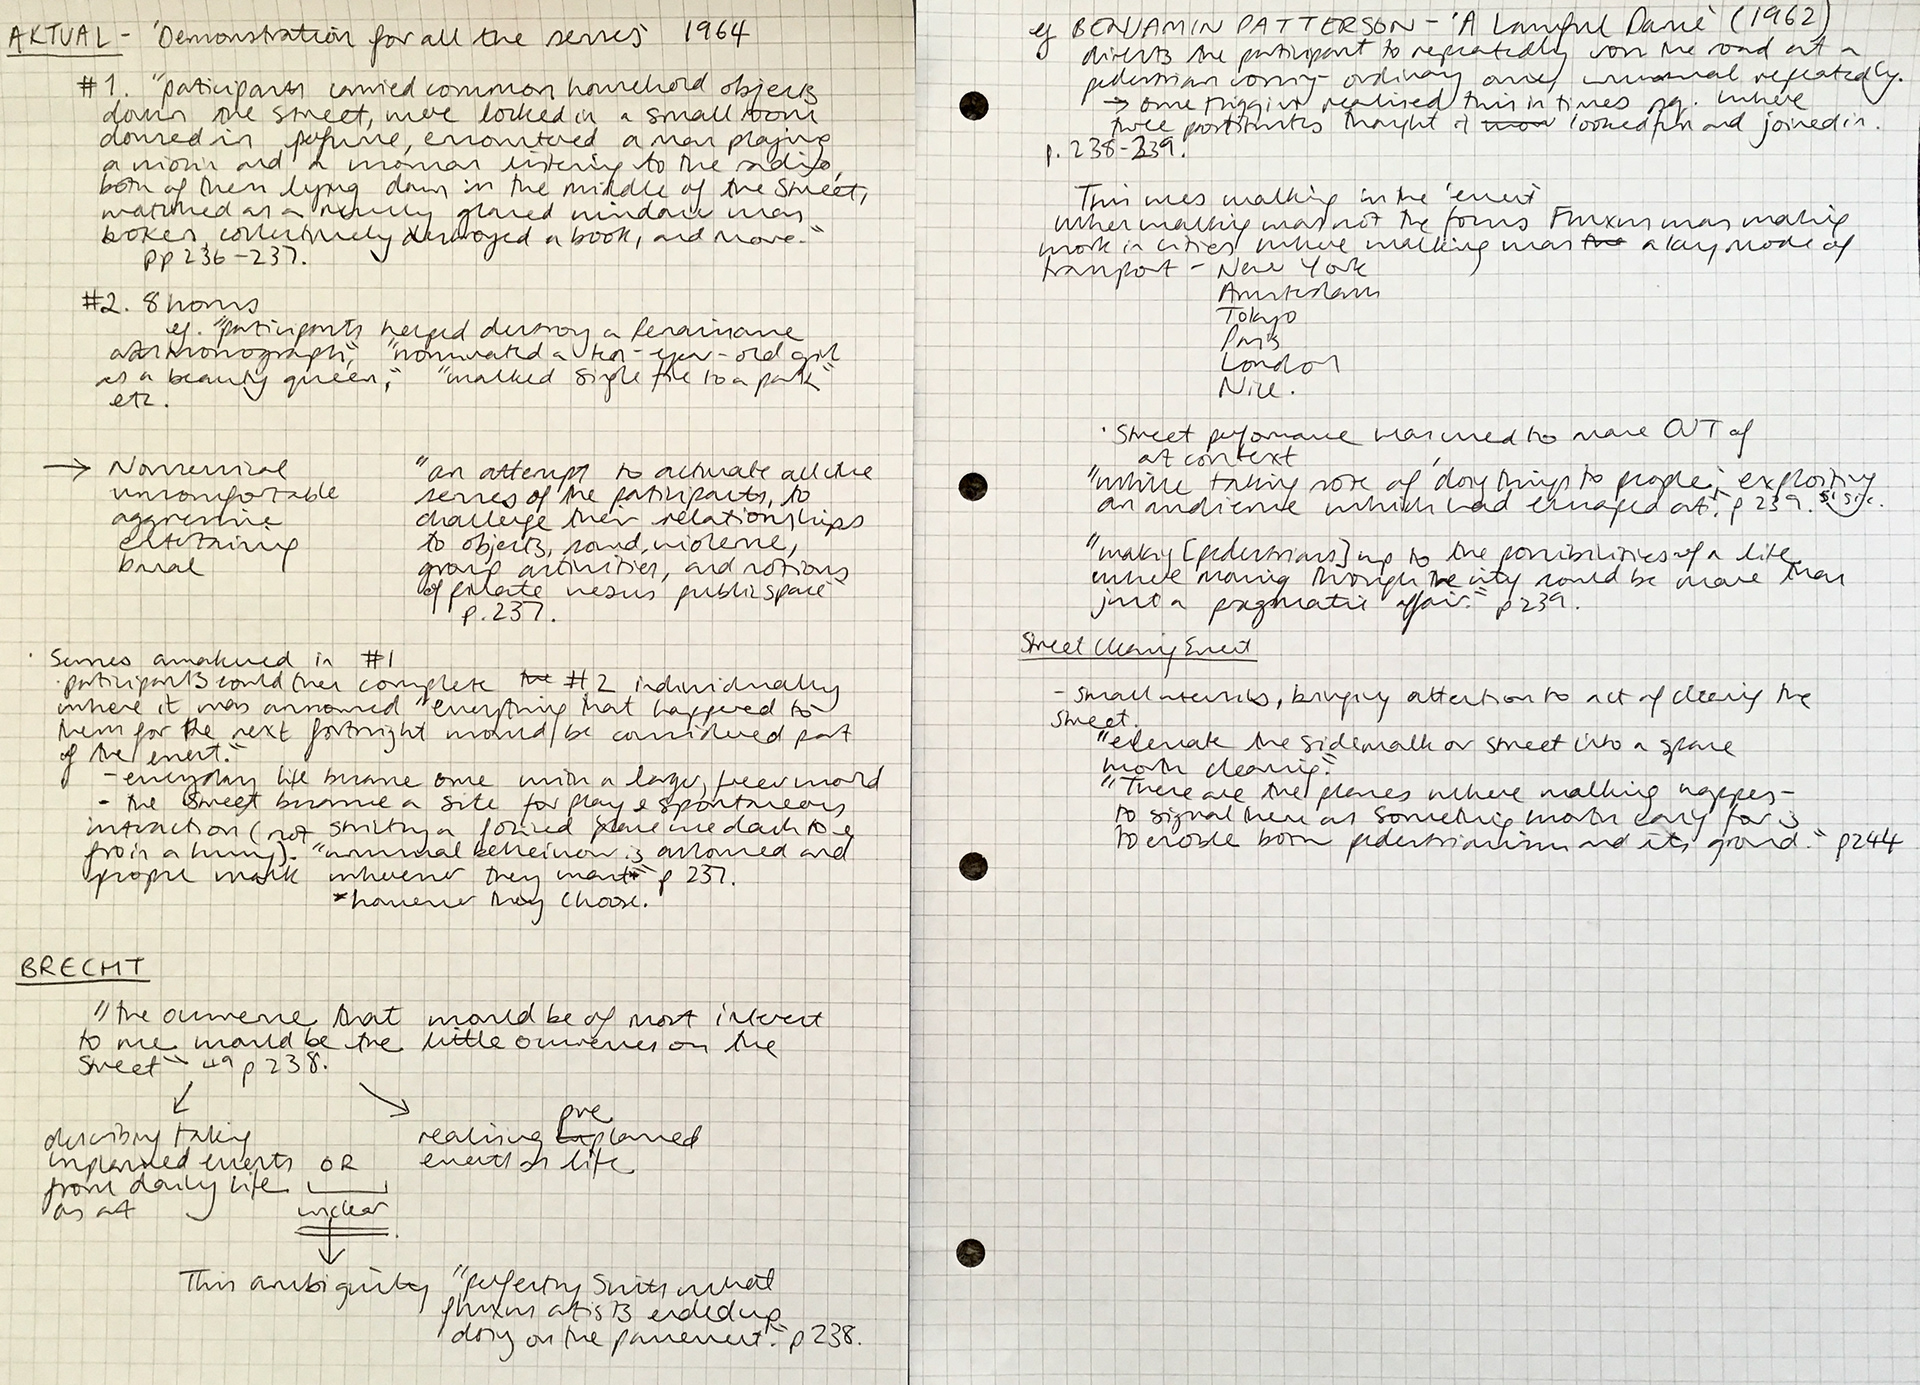 AKTUAL - 'Demonstration for all the senses' 1964
#1. "participants carried common household objects
down the street, were locked in a small room
doused in perfume, encountered a man playing
a violin and a woman listening to the radio,
both of them lying down in the middle of the street,
watched as a newly glazed window was
broken, collectively destroyed a book, and more."
pp 236-237.
#2. 8 hours
eg. "participants helped destroy a Renaissance
art monograph", "nominated a ten-year-old girl
as a beauty queen," "walked single file to a park"
etc.
→ Nonsensical
uncomfortable
aggressive
entertaining
banal
"an attempt to activate all the
senses of the participants, to
challenge their relationships
to objects, sound, violence,
group activities, and notions
of private versus public space"
p.237.
· Senses awakened in #1
participants could then complete the #2 individually
where it was announced "everything that happened to
them for the next fortnight would be considered part
of the event."
- everyday life became one with a larger, freer world
- the street became a site for play & spontaneous
interaction (not strictly a forced space we dash to &
fro in a hurry). "unusual behaviour is allowed and
people walk wherever they want*" p 237.
*however they choose.
BRECHT
"the occurrence that would be of most interest
to me would be the little occurrences on the
street" 49 p 238.
describing taking
unplanned events
from daily life
as art
OR
unclear
realising pre planned
events as life
This ambiguity "perfectly suits what
fluxus artists ended up
doing on the pavement." p 238.
eg BENJAMIN PATTERSON - 'A Lawful Dance' (1962)
directs the participant to repeatedly cross the road at a
pedestrian crossing - ordinary once, unusual repeatedly.
→ one realised this in times sq. where
three prostitutes thought it looked fun and joined in.
p. 238-239.
This uses walking in the 'event'
when walking was not the focus Fluxus was making
work in cities where walking was the a key mode of
transport - New York
Amsterdam
Tokyo
Paris
London
Nice.
· Street performance was used to move OUT of
art context
"while taking note of 'doing things to people', exploiting
an audience which had engaged art". p 239.
"waking [pedestrians] up to the possibilities of a life
where moving through the city could be more than
just a pragmatic affair." p 239.
Street Cleaning Event
- small utensils, bringing attention to act of cleaning the
street.
"elevate the sidewalk or street into a space
worth cleaning."
"These are the planes where walking happens -
to signal them as something worth caring for is
to enoble both pedestrianism and its ground." p244